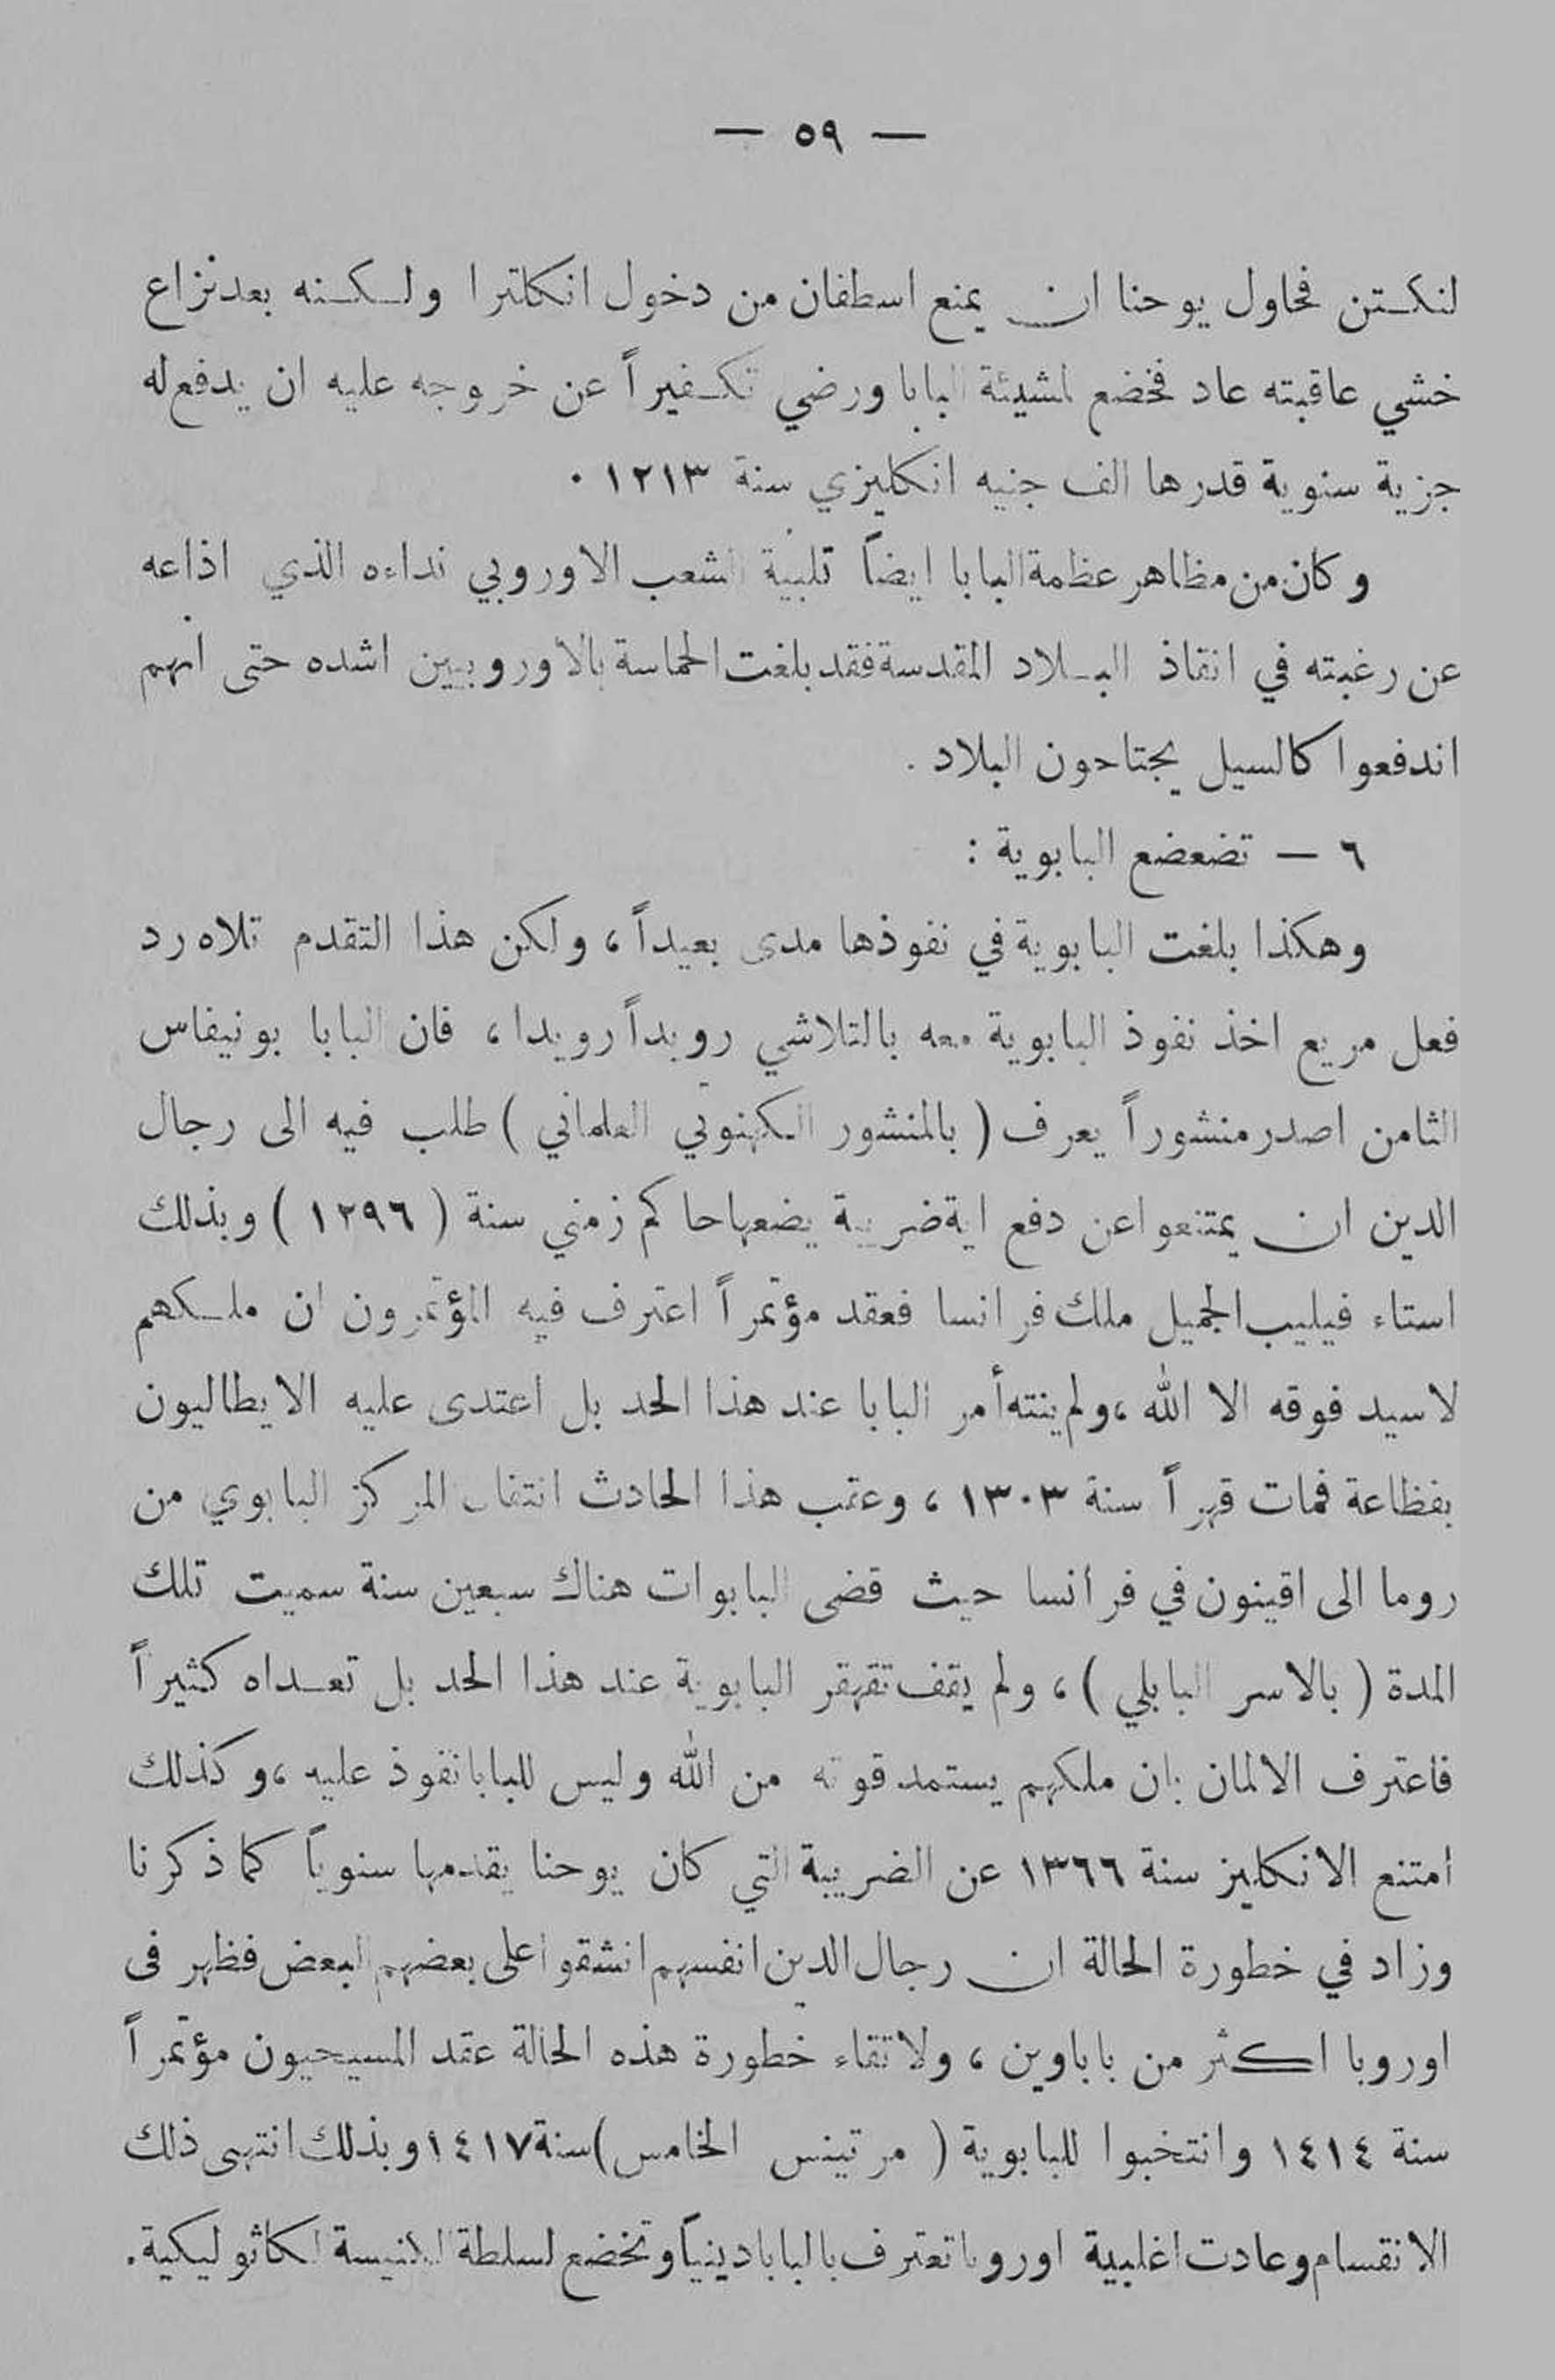 — ٥٩ —
لنكستن فحاول يوحنا ان يمنع اسطفان من دخول انكلترا ولكنه بعد نزاع
خشي عاقبته عاد فخضع لمشيئة البابا ورضي تكفيراً عن خروجه عليه ان يدفع له
جزية سنوية قدرها الف جنيه انكليزي سنة ١٢١٣ .
وكان من مظاهر عظمة البابا ايضاً تلبية الشعب الاوروبي نداءه الذي اذاعه
عن رغبته في انقاذ البلاد المقدسة فقد بلغت الحماسة بالاوروبيين اشده حتى انهم
اندفعوا كالسيل يجتاحون البلاد .
٦ — تضعضع البابوية :
وهكذا بلغت البابوية في نفوذها مدى بعيداً ، ولكن هذا التقدم تلاه رد
فعل مريع اخذ نفوذ البابوية معه بالتلاشي رويداً رويدا ، فان البابا بونيفاس
الثامن اصدر منشوراً يعرف ( بالمنشور الكهنوتي العلماني ) طلب فيه الى رجال
الدين ان يمتنعوا عن دفع اية ضريبة يضعها حاكم زمني سنة ( ١٢٩٦ ) وبذلك
استاء فيليب الجميل ملك فرانسا فعقد مؤتمراً اعترف فيه المؤتمرون ان ملكهم
لا سيد فوقه الا الله ، ولم ينته أمر البابا عند هذا الحد بل اعتدى عليه الايطاليون
بفظاعة فمات قهراً سنة ١٣٠٣ ، وعقب هذا الحادث انتقال المركز البابوي من
روما الى اڤينون في فرانسا حيث قضى البابوات هناك سبعين سنة سميت تلك
المدة ( بالاسر البابلي ) ، ولم يقف تقهقر البابوية عند هذا الحد بل تعداه كثيراً
فاعترف الالمان بان ملكهم يستمد قوته من الله وليس للبابا نفوذ عليه ، وكذلك
امتنع الانكليز سنة ١٣٦٦ عن الضريبة التي كان يوحنا يقدمها سنوياً كما ذكرنا
وزاد في خطورة الحالة ان رجال الدين انفسهم انشقوا على بعضهم البعض فظهر فى
اوروبا اكثر من باباوين ، ولاتقاء خطورة هذه الحالة عقد المسيحيون مؤتمراً
سنة ١٤١٤ وانتخبوا للبابوية ( مرتينس الخامس ) سنة ١٤١٧ وبذلك انتهى ذلك
الانقسام وعادت اغلبية اوروبا تعترف بالبابا دينياً وتخضع لسلطة الكنيسة الكاثوليكية.